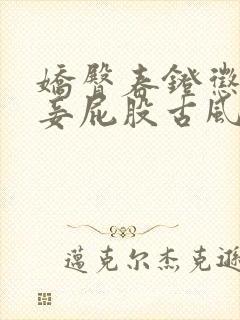 嬌臀春鐙懲
妾屁股古風
邁克尔杰克遜